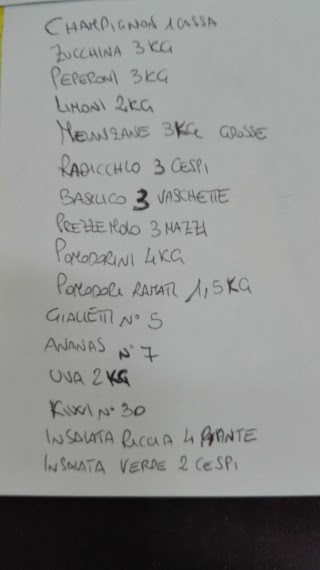 CHAMPIGNON 1 CASSA
ZUCCHINA 3 KG
PEPERONI 3KG
LIMONI 2KG
MELANZANE 3KG GROSSE
RADICCHIO 3 CESPI
BASILICO 3 VASCHETTE
PREZZEMOLO 3 MAZZI
POMODORINI 4KG
POMODORI RAMATI 1,5 KG
GIALLETTI N° 5
ANANAS N° 7
UVA 2 KG
KIWI N° 30
INSALATA RICCIA 4 PIANTE
INSALATA VERDE 2 CESPI